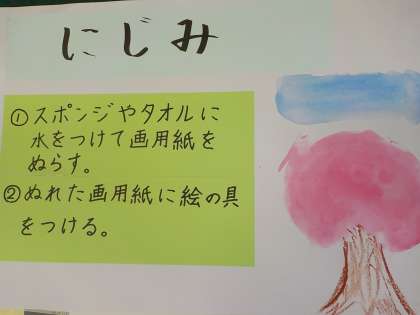 にじみ
①スポンジやタオルに
水をつけて画用紙を
ぬらす。
②ぬれた画用紙に絵の具
をつける。